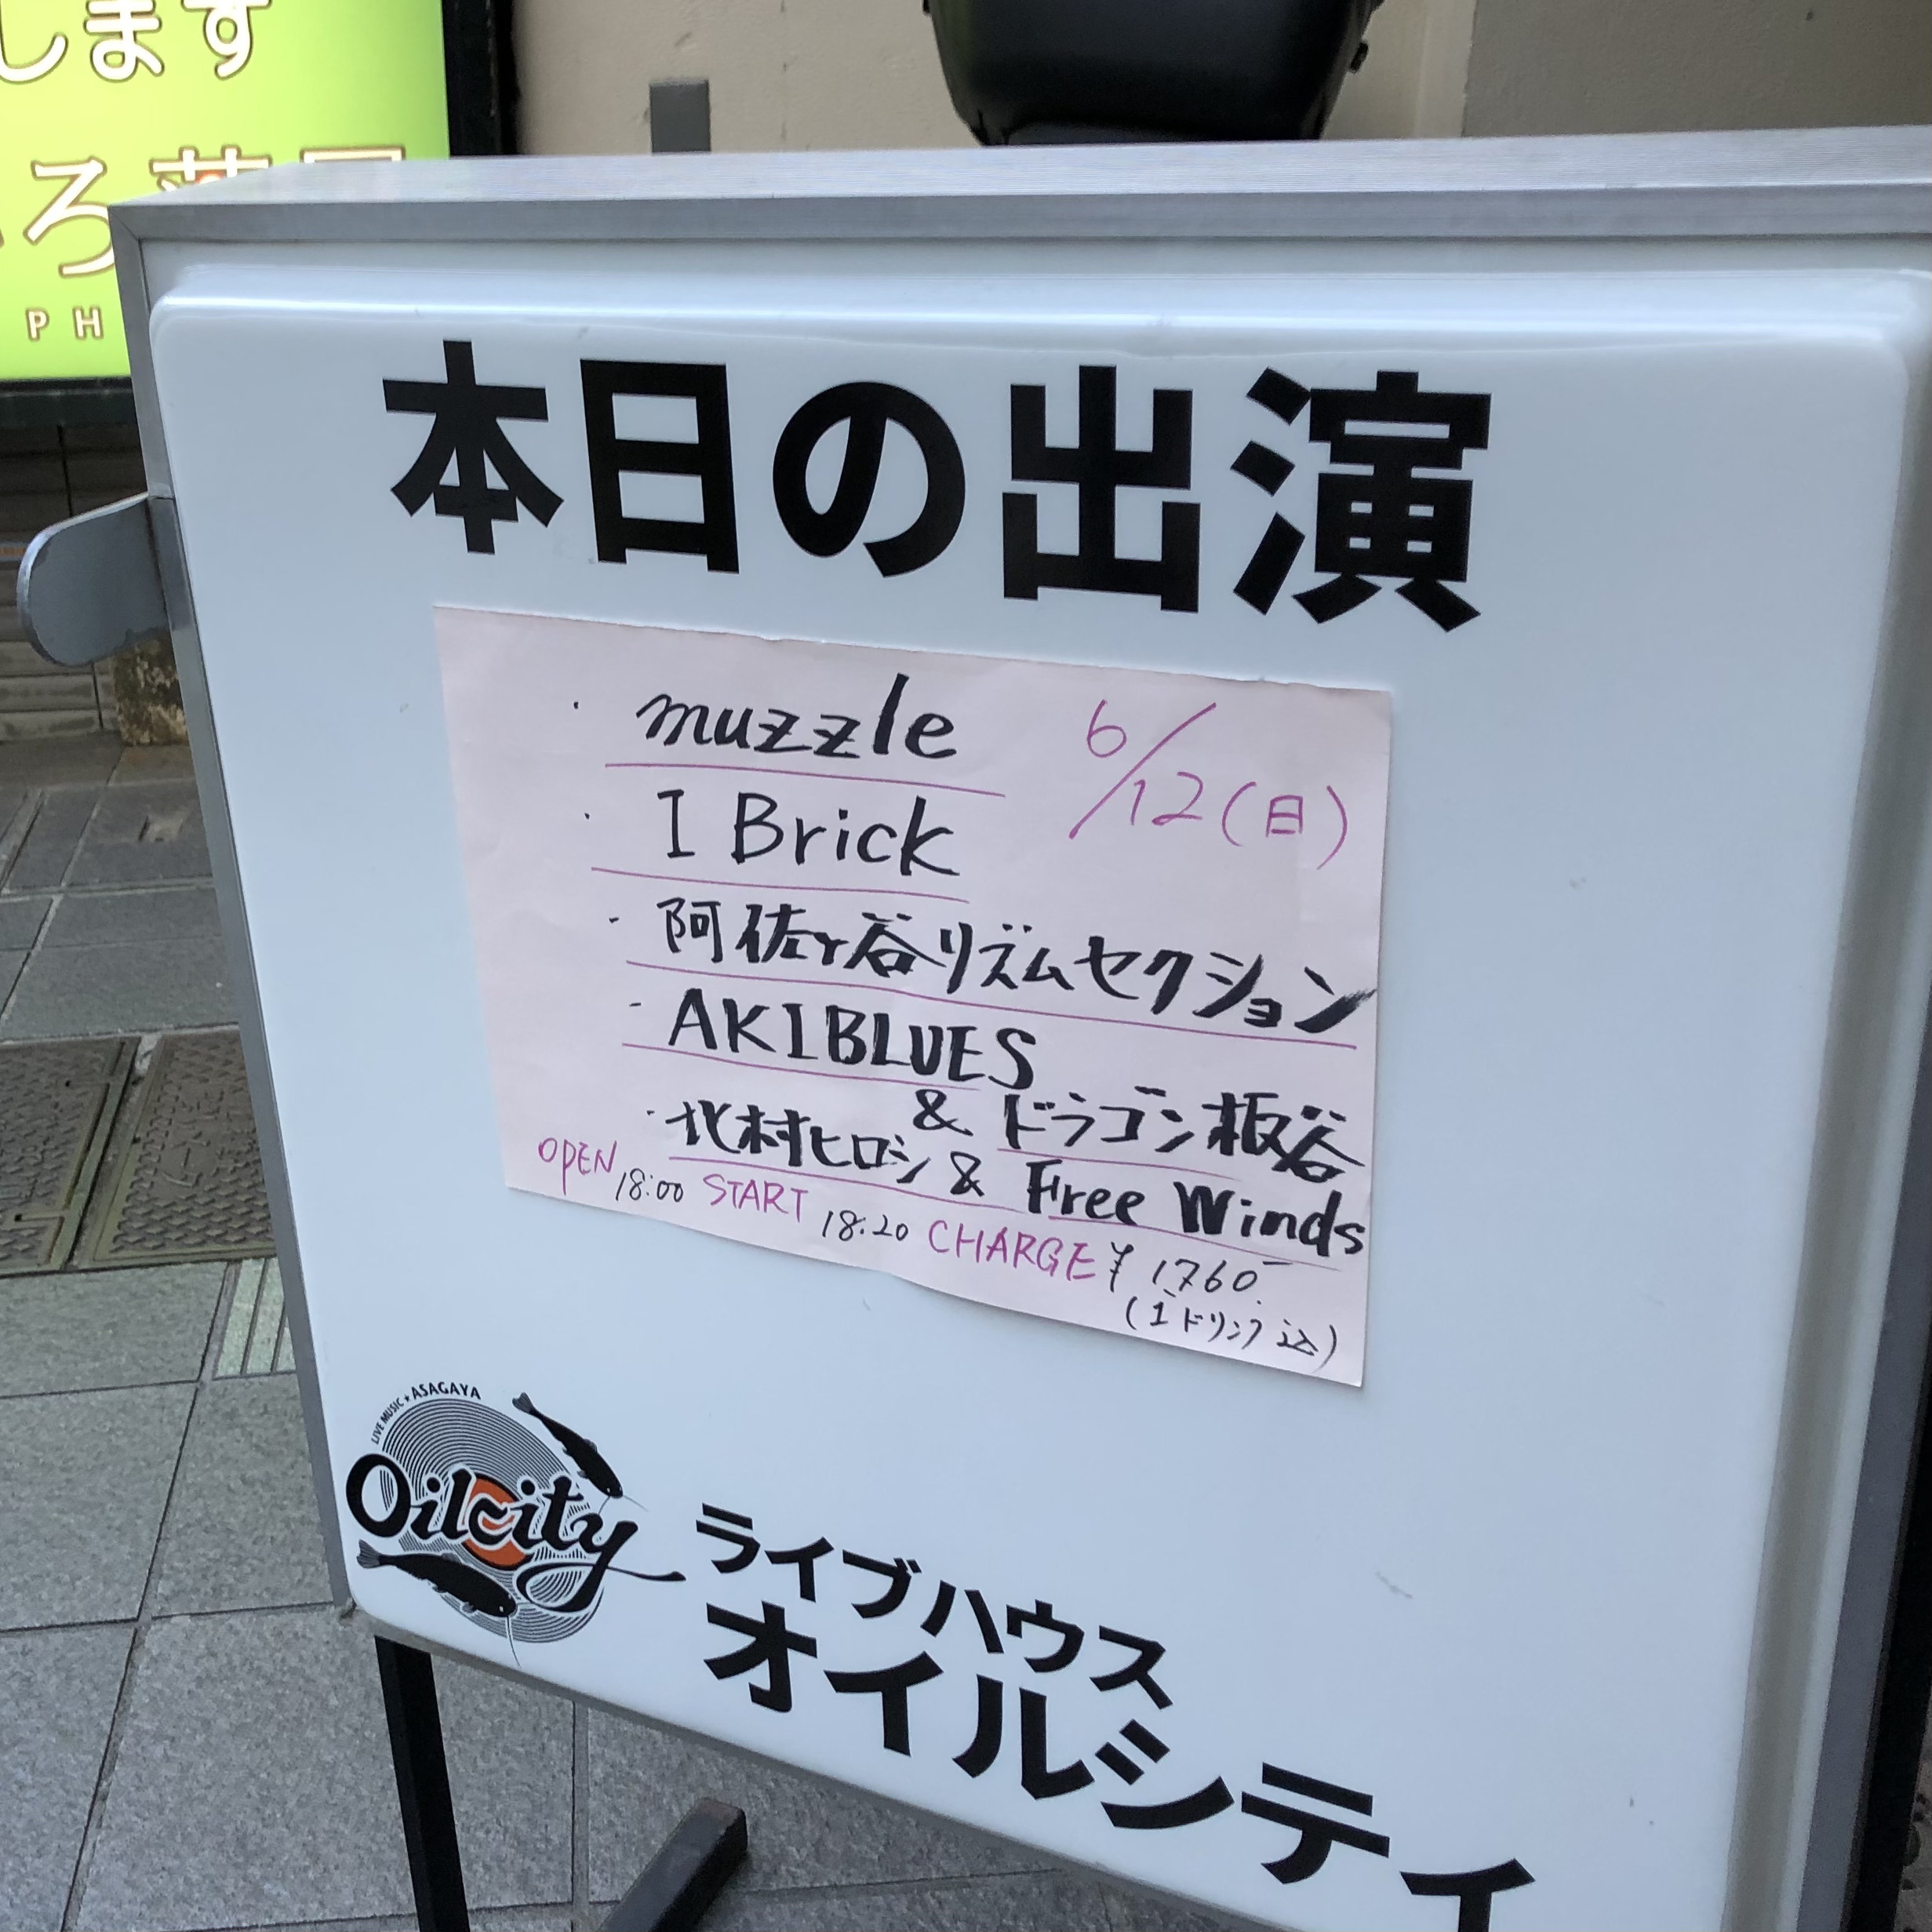 します
ろ薬局
PH
本日の出演
・muzzle
6/12(日)
・I Brick
・阿佐ヶ谷リズムセクション
・AKIBLUES
& ドラゴン板谷
・北村ヒロシ & Free Winds
OPEN 18:00 START 18:20 CHARGE ¥1760-
(1ドリンク込)
LIVE MUSIC★ASAGAYA
Oilcity
ライブハウス
オイルシティ